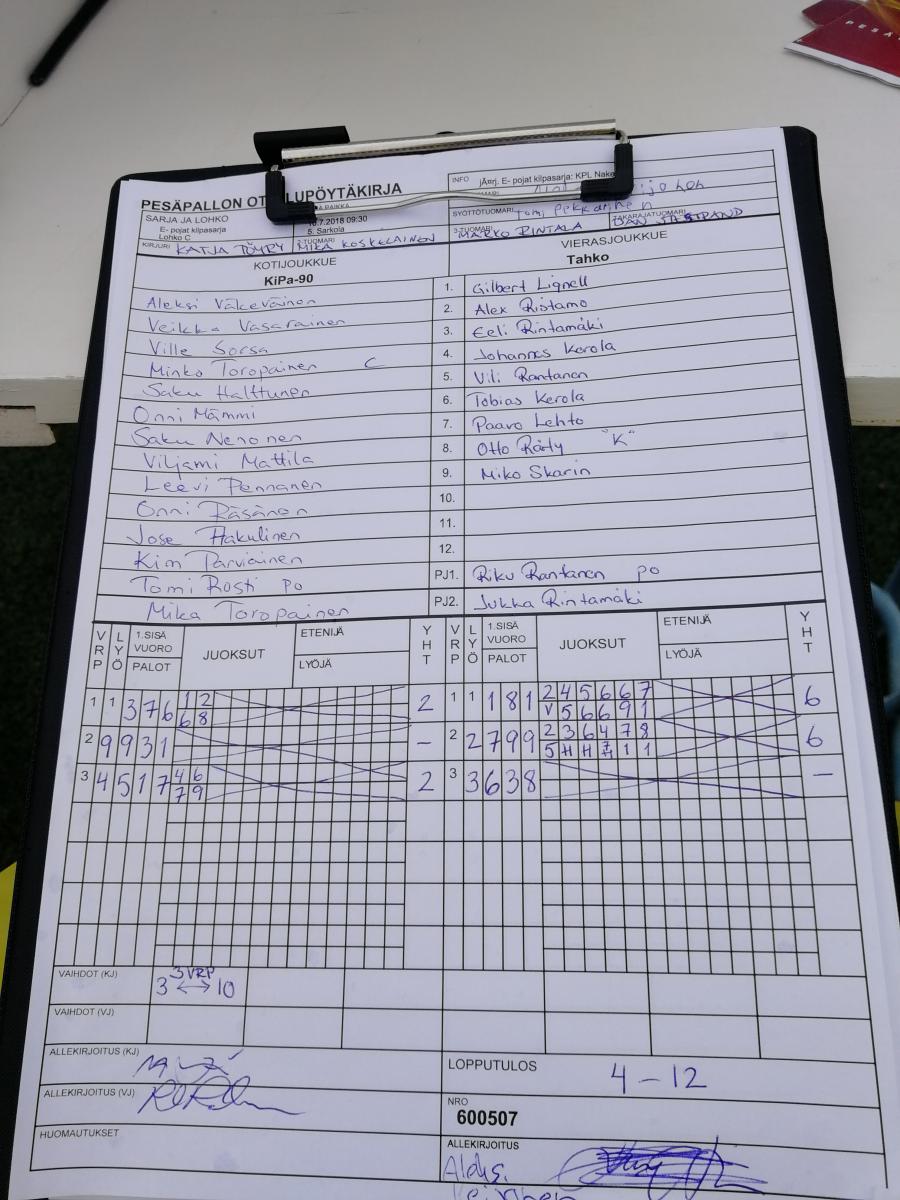 PESÄPALLON OT LUPÖYTÄKIRJA
INFO jÄ¤rj. E- pojat kilpasarja: KPL Nake
SARJA JA LOHKO
E- pojat kilpasarja
Lohko C
.7.2018 09:30
5. Sarkola
SYÖTTÖTUOMARI Tomi Pekkarinen
KIRJURI KATJA TÖYRY
2-TUOMARI MIKA KOSKELAINEN
3-TUOMARI MARKO RINTALA
TAKARAJATUOMARI DAN
KOTIJOUKKUE
KiPa-90
VIERASJOUKKUE
Tahko
Aleksi Väkeväinen 1. Gilbert Lignell
Veikka Vasarainen 2. Alex Ristamo
Ville Sorsa 3. Eeli Rintamäki
Minko Toropainen C 4. Johannes Kerola
Saku Halttunen 5. Vili Rantanen
Onni Mämmi 6. Tobias Kerola
Saku Nenonen 7. Paavo Lehto
Viljami Mattila 8. Otto Räty "K"
Leevi Pennanen 9. Miko Skarin
Onni Räsänen 10.
Jose Hakulinen 11.
Kim Parviainen 12.
Tomi Rosti PO PJ1. Riku Rantanen PO
Mika Toropainen PJ2. Jukka Rintamäki
VRP LYÖ 1.SISÄ VUORO PALOT JUOKSUT ETENIJÄ LYÖJÄ YHT VRP LYÖ 1.SISÄ VUORO PALOT JUOKSUT ETENIJÄ LYÖJÄ YHT
1 1 3 7 6 1 2 2 1 1 1 8 1 2 4 5 6 6 7 6
6 8 V 5 6 6 9 1
2 9 9 3 1 – 2 2 7 9 9 2 3 6 4 7 8 6
5 H H 7 1 1
3 4 5 1 7 4 6 2 3 3 6 3 8 –
7 9
VAIHDOT (KJ) 3 VRP
3 ↔ 10
VAIHDOT (VJ)
ALLEKIRJOITUS (KJ)
LOPPUTULOS 4 – 12
ALLEKIRJOITUS (VJ)
NRO
600507
HUOMAUTUKSET
ALLEKIRJOITUS